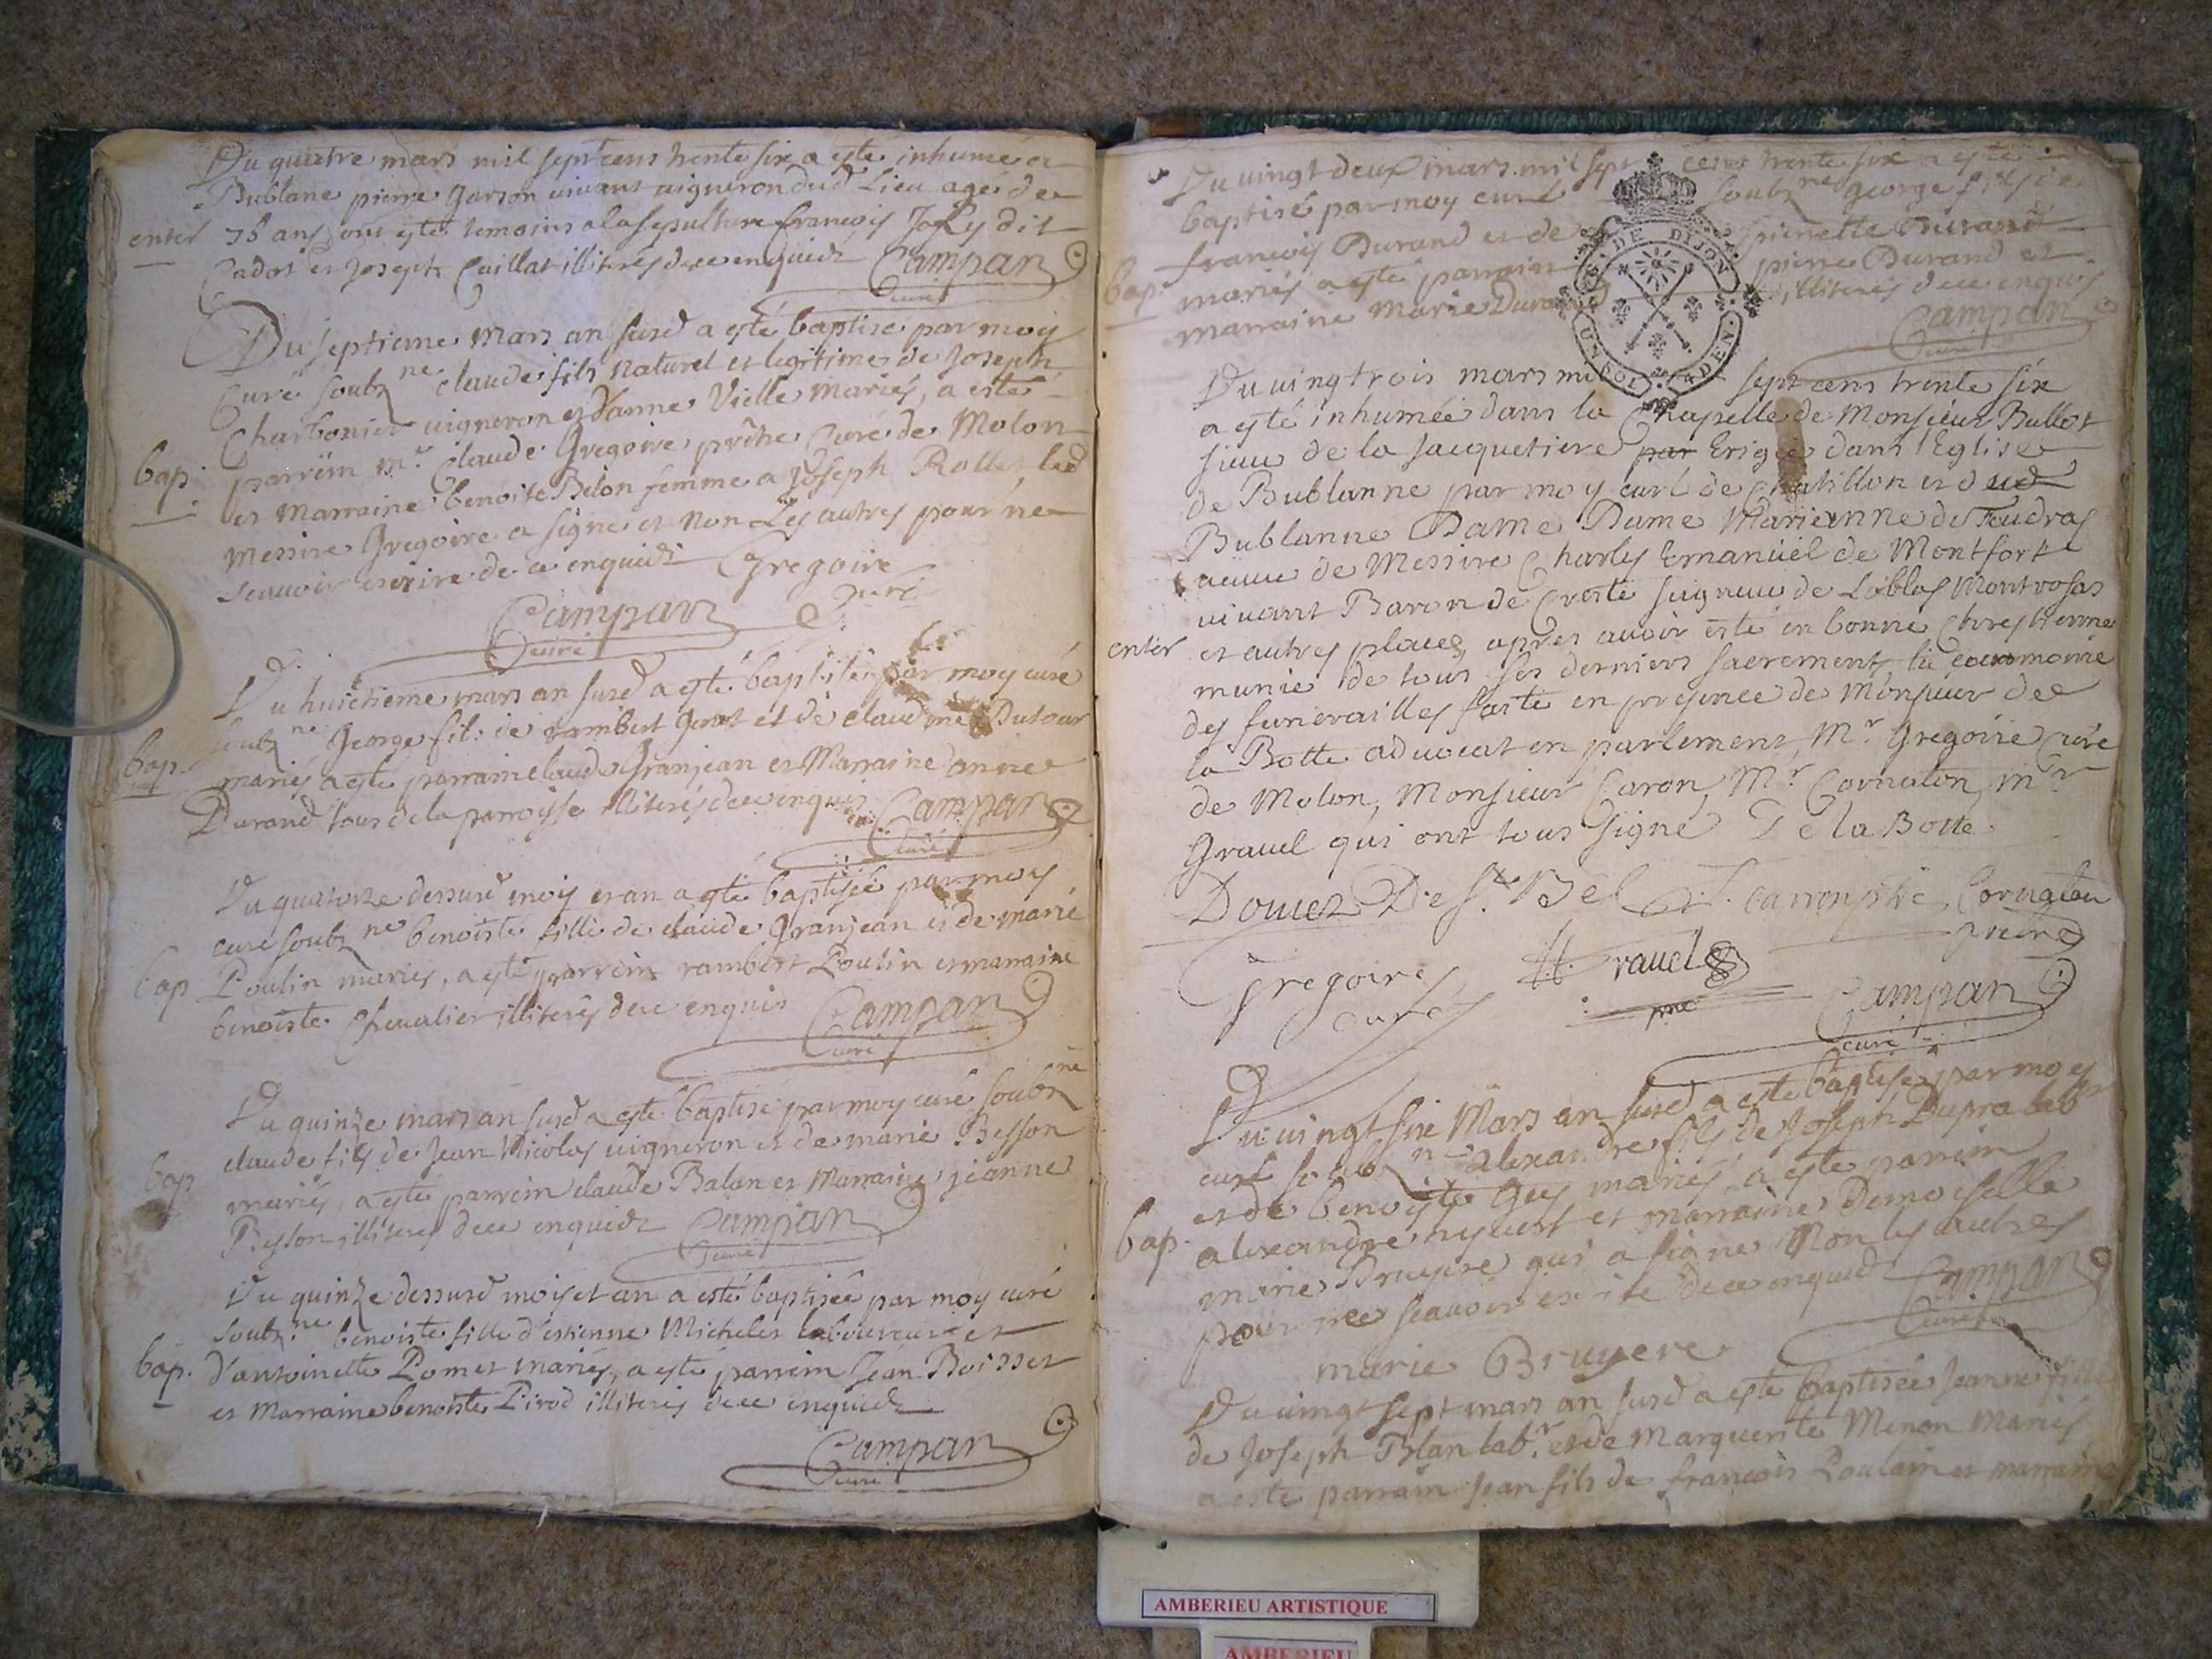 Du quatre mars mil sept cens trente six a esté inhumé a
Bublane pierre Garson vivant vigneron dud Lieu agé de
enter 76 ans, ont esté temoins a la sepulture francois Joly dit
Cadot et Joseph Caillat illiterés de ce enquids Campan
Curé
Du septieme Mars an susd a esté baptise par moy
Curé soubz ne claude fils naturel et legitime de Joseph
Charbonier vigneron et d'anne Vielle mariés, a esté
parrein Mr Claude Gregoire prêtre Curé de Molon
bap.
et marraine benoite Belon femme a Joseph Rollet, led
messire Gregoire a signé et non Les autres pour ne
scavoir escrire de ce enquids Gregoire
Curé
Campan
Curé
Du huictieme mars an susd a esté baptisé par moy curé
soubz ne George fils de rambert et de claudine Dutour
bap.
mariés a esté parrain claude Granjean et Marraine anne
Durand tous de la parroisse illiterés de ce enquis Campan
Curé
Du quatorze dessusd mois et an a esté baptisée par moy
curé soubz ne benoiste fille de claude Granjean et de marie
bap Poulin mariés, a esté parrein rambert Poulin et marraine
benoiste Chevalier illiterés de ce enquis Campan
Curé
Du quinze mars an susd a esté baptisé par moy curé soubz ne
claude fils de Jean Nicolas vigneron et de marie Besson
bap
mariés, a esté parrein claude Balan et Marraine jeanne
Besson illiterés de ce enquids Campan
Curé
Du quinze dessusd mois et an a esté baptisée par moy curé
soubz ne benoiste fille d'estienne Michelet laboureur et
bap. d'antoinette Pomet mariés, a esté parrein Jean Boisset
et Marraine benoiste Pirod illiterés de ce enquids
Campan
Curé
Du vingt deux mars mil sept cens trente six a esté
baptisé par moy curé soubz ne George fils de
francois Durand et de pierrette Durand
bap. mariés a esté parrain pierre Durand et
marraine Marie Durand illiterés de ce enquis
Campan
Curé
GEN. DE DIJON
UN SOL
Du vingt trois mars mil sept cens trente six
a esté inhumée dans la Chapelle de Monsieur Bullot
sieur de la Jacquetiere par Erigée dans l'Eglise
de Bublanne par moy curé de Chatillon et dud
Bublanne Dame Dame Marianne de Feudras
veuve de Messire Charles Emanüel de Montfort
vivant Baron de Creste seigneur de Loblas Montrosas
enter et autres places, apres avoir esté en bonne Chrestienne
munie de tous ses derniers sacrements, la ceremonie
des funerailles faite en presence de Monsieur de
la Botte advocat en parlement, Mr Gregoire Curé
de Molon, Monsieur Caron, Mr Cornaton, Mr
Gravel qui ont tous signé De la Botte
De St Bel Cornaton
pretre
Gregoire Gravel
curé ptre Campan
curé
Du vingt six Mars an susd a esté baptisé par moy
curé soubz ne alexandre fils de Joseph Dupra labr
et de benoiste Guy mariés, a esté parrein
bap. alexandre et marraine Demoiselle
marie Bruyere qui a signé Non les autres
pour ne scavoir escrire de ce enquids Campan
Curé
marie Bruyere
Du vingt sept mars an susd a esté baptisée Jeanne fille
de Joseph Blan labr. et de Marguerite Menon Mariés
a esté parrain Jean fils de francois Poulain et marraine
AMBERIEU ARTISTIQUE
AMBERIEU